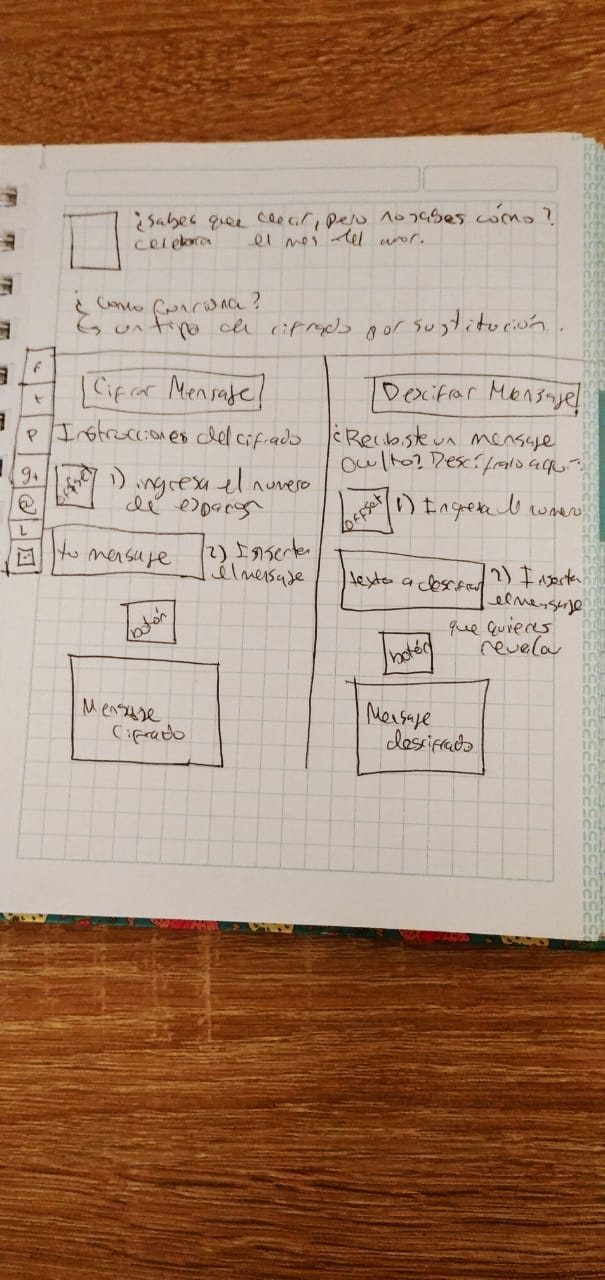 ¿Sabes que decir, pero no sabes cómo?
celebra el mes del amor.
¿Como funciona?
Es un tipo de cifrado por sustitución.
f
t
p
g+
@
L
Cifrar Mensaje
Instrucciones del cifrado
offset
1) ingresa el numero
de espacios
tu mensaje
2) Inserta
el mensaje
botón
Mensaje
cifrado
Descifrar Mensaje
¿Recibiste un mensaje
oculto? Descífralo aquí
offset
1) Ingresa el numero
texto a descifrar
2) Inserta
el mensaje
que quieres
revelar
botón
Mensaje
descifrado